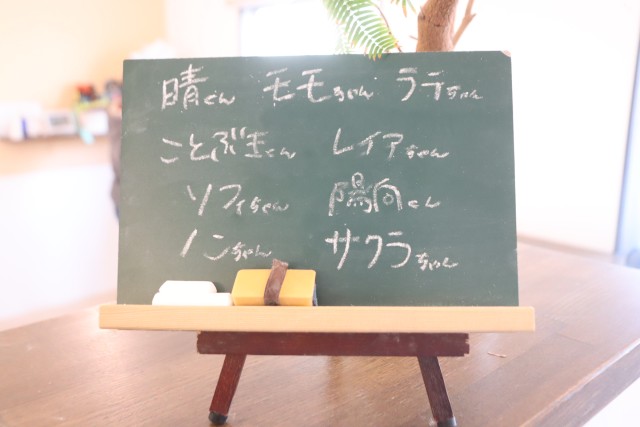 晴くん モモちゃん ララちゃん
ことぶ王くん レイアちゃん
ソフィちゃん 陽向くん
ノンちゃん サクラちゃん